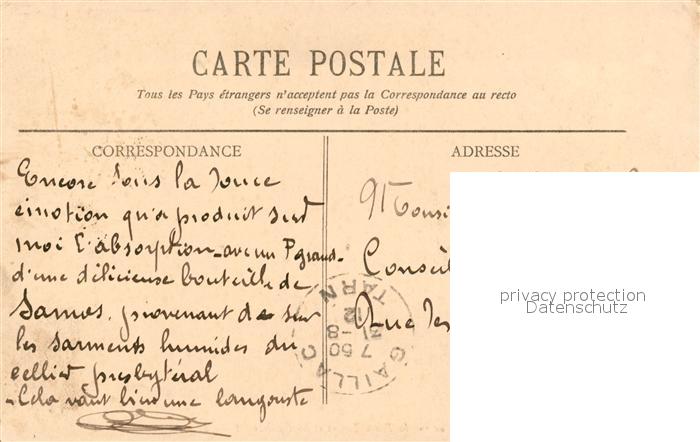 CARTE POSTALE
Tous les Pays étrangers n'acceptent pas la Correspondance au recto
(Se renseigner à la Poste)
CORRESPONDANCE
ADRESSE
Encore sous la douce
émotion qu'a produit sur
moi l'absorption - avec un P grand -
d'une délicieuse bouteille de
Samos, provenant de sur
les sarments humides du
cellier presbytéral
- Cela vaut bien une langouste
Monsi
Conseil
Rue des
GAILLAC
TARN
7 50
31 - 8
12
privacy protection
Datenschutz